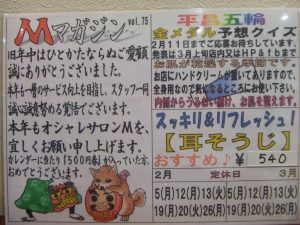 Mマガジン vol.75
旧年中はひとかたならぬご愛顧
誠にありがとうございました。
本年も一層のサービス向上を目指し、スタッフ一同
誠心誠意努める覚悟でございます。
本年もオシャレサロンMを、
宜しくお願い申し上げます。
カレンダーに当たり「500円券」が入っていた方、
おめでとうございます。
平昌五輪
金メダル予想クイズ
2月11日までご応募お待ちしています。
発表は3月上旬店内又はHP&fbまで
お肌が乾燥する季節です。
お店にハンドクリームが置いてありますので、
全身用なので気になるところにお使い下さい。
内側からうるおい届け、お肌を整えます。
スッキリ&リフレッシュ!
【耳そうじ】
おすすめ♪ ¥540
2月 定休日 3月
5(月)12(月)13(火)
19(月)20(火)26(月)
5(月)12(月)13(火)
19(月)20(火)26(月)